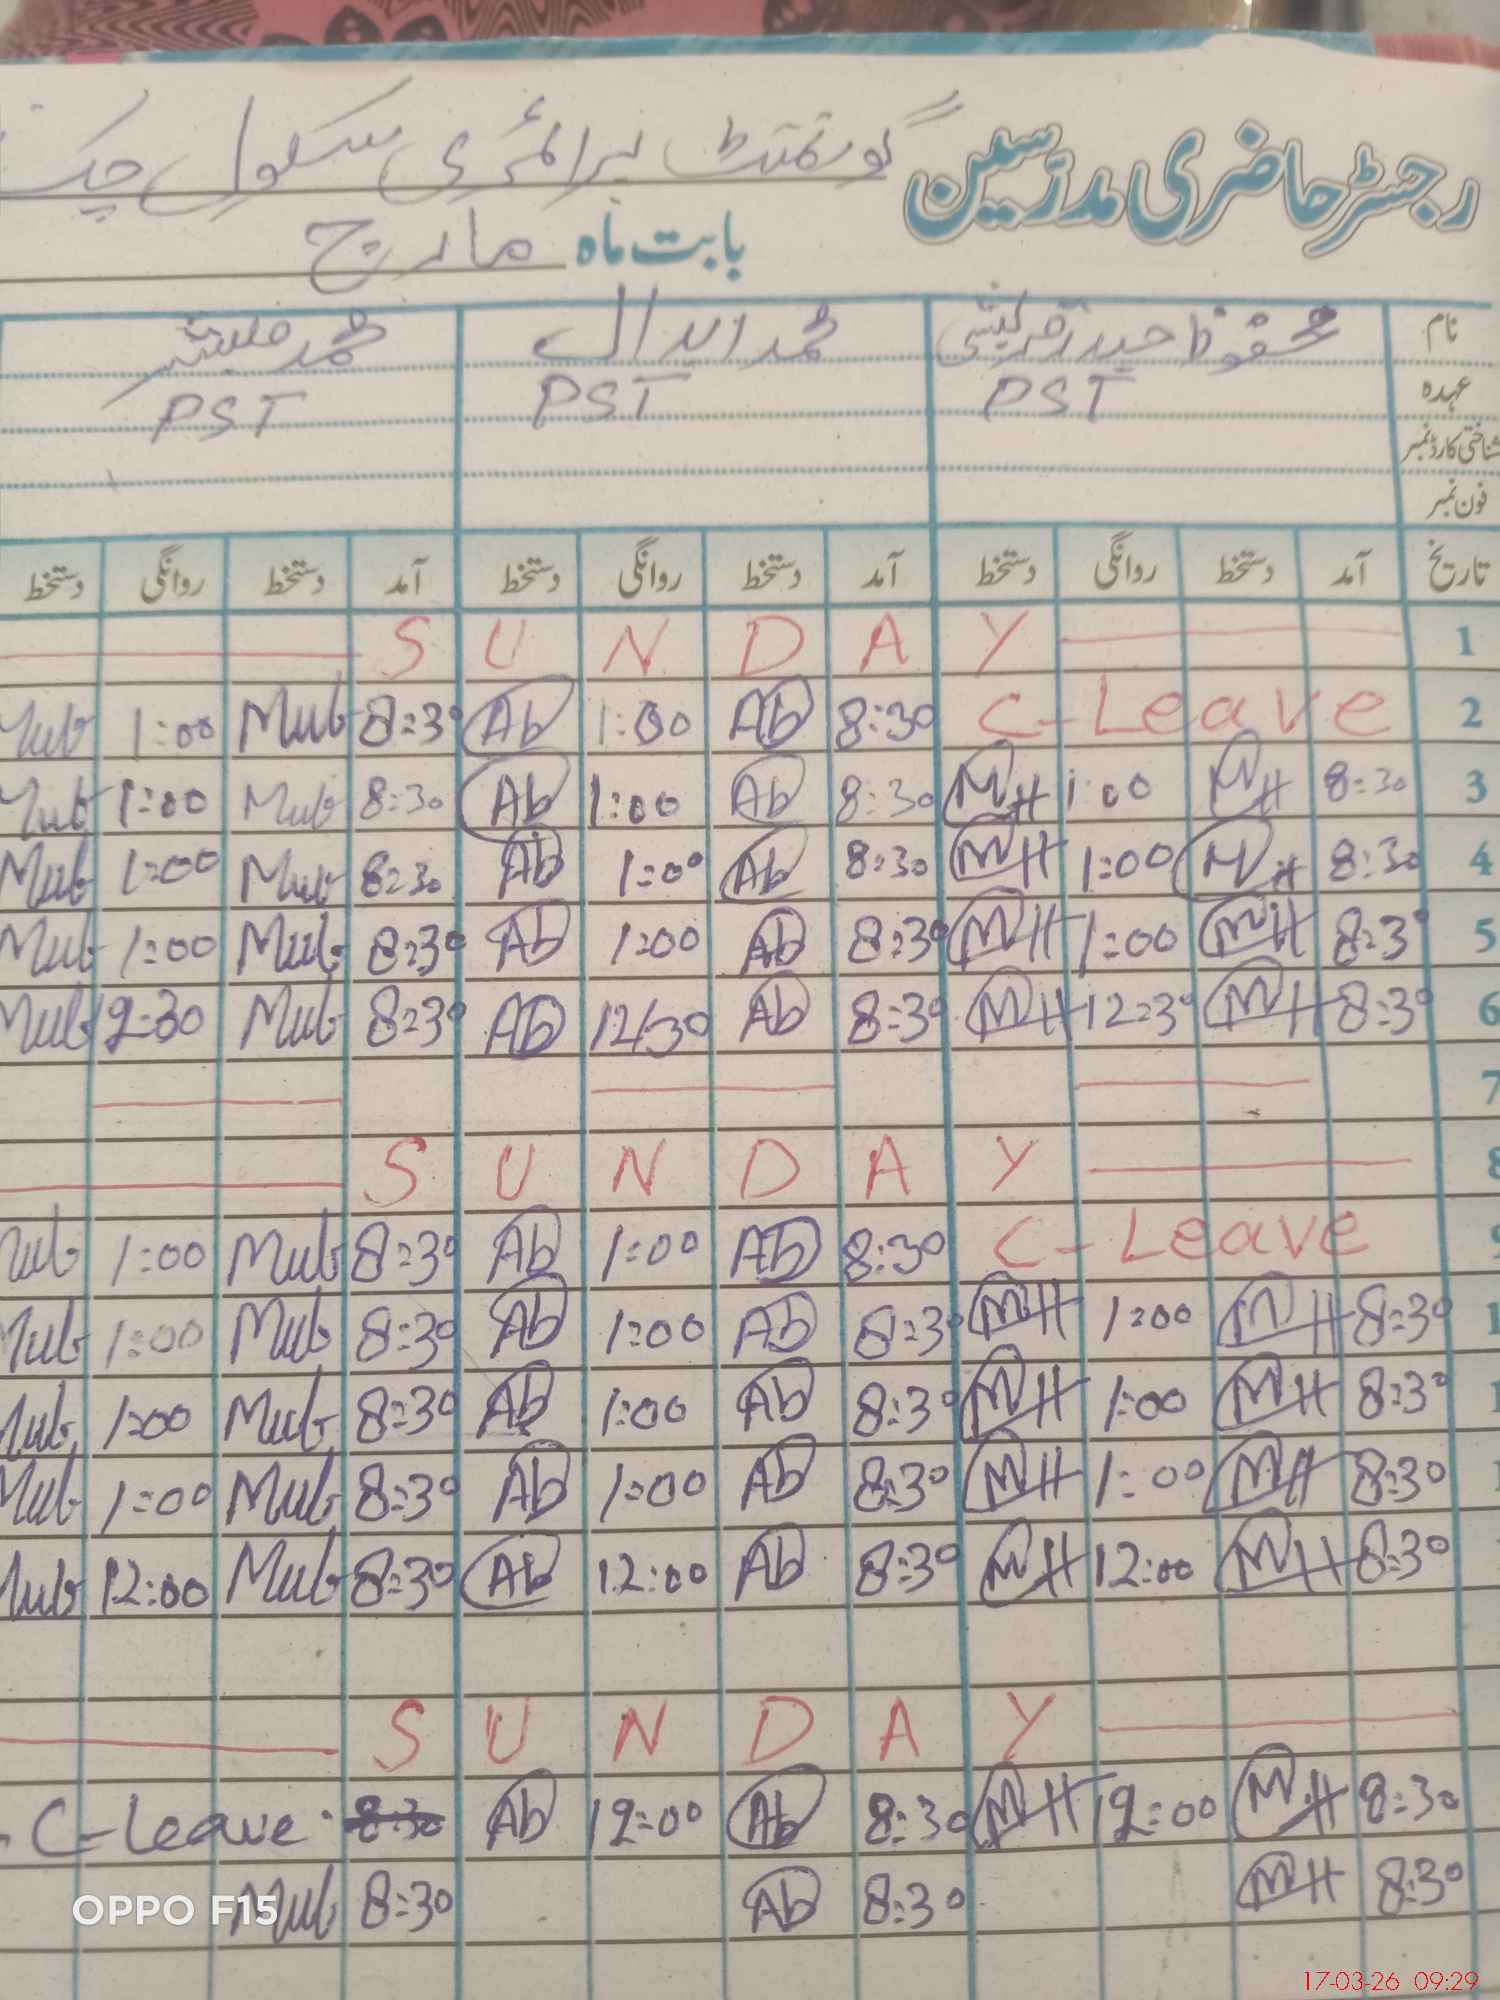 رجسٹر حاضری مدرسین گورنمنٹ پرائمری سکول چک
بابت ماہ مارچ
نام محفوظ حیدر قریشی محمد ابدال محمد مبشر
عہدہ PST PST PST
شناختی کارڈ نمبر
فون نمبر
تاریخ آمد دستخط روانگی دستخط آمد دستخط روانگی دستخط آمد دستخط روانگی دستخط
1 S U N D A Y
2 C-Leave 8:30 Ab 1:00 Ab 8:30 Mub 1:00 Mub
3 8:30 MH 1:00 MH 8:30 Ab 1:00 Ab 8:30 Mub 1:00 Mub
4 8:30 MH 1:00 MH 8:30 Ab 1:00 Ab 8:30 Mub 1:00 Mub
5 8:30 MH 1:00 MH 8:30 Ab 1:00 Ab 8:30 Mub 1:00 Mub
6 8:30 MH 12:30 MH 8:30 Ab 12/30 Ab 8:30 Mub 12:30 Mub
7
8 S U N D A Y
9 C-Leave 8:30 Ab 1:00 Ab 8:30 Mub 1:00 Mub
1 8:30 MH 1:00 MH 8:30 Ab 1:00 Ab 8:30 Mub 1:00 Mub
1 8:30 MH 1:00 MH 8:30 Ab 1:00 Ab 8:30 Mub 1:00 Mub
8:30 MH 1:00 MH 8:30 Ab 1:00 Ab 8:30 Mub 1:00 Mub
8:30 MH 12:00 MH 8:30 Ab 12:00 Ab 8:30 Mub 12:00 Mub
S U N D A Y
8:30 MH 12:00 MH 8:30 Ab 12:00 Ab 8:30 C-Leave
8:30 MH 8:30 Ab 8:30 Mub
OPPO F15
17-03-26 09:29